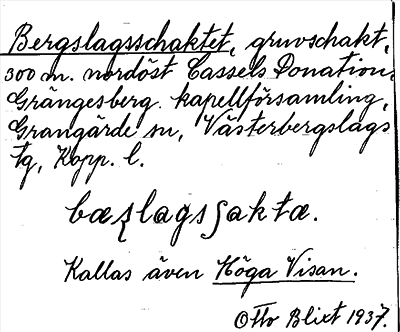 Bergslagsschaktet, gruvschakt,
300 m. nordöst Cassels Donation.
Grängesberg. kapellförsamling,
Grangärde sn, Västerbergslags
tg, Kopp. l.
bæʒlagsʃaktæ.
Kallas även Höga Visan.
Otto Blixt 1937.